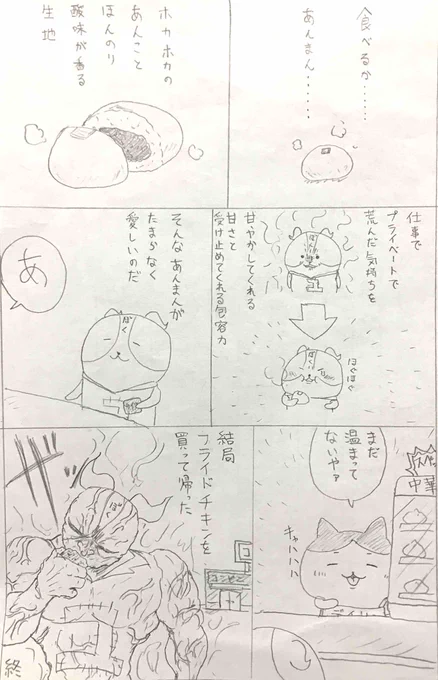 食べるか……
あんまん……
ホカホカの
あんこと
ほんのり
酸味が香る
生地
仕事で
プライベートで
荒んだ気持ちを
ぼく
ぼく
ほぐほぐ
甘やかしてくれる
甘さと
受け止めてくれる包容力
そんなあんまんが
たまらなく
愛しいのだ
ぼく
あ
中華
まだ
温まって
ないやァ
キャハハハ
結局
フライドチキンを
買って帰った
コンビニ
ぼく
終